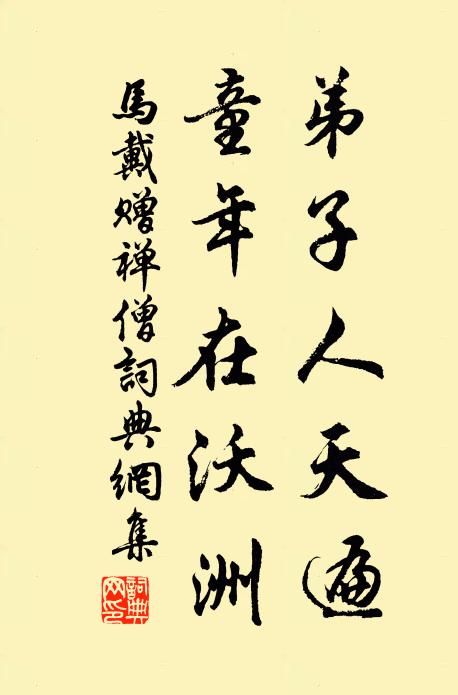 弟子人天遍
童年在沃洲
馬戴贈禅僧詞典網集
詞典網印